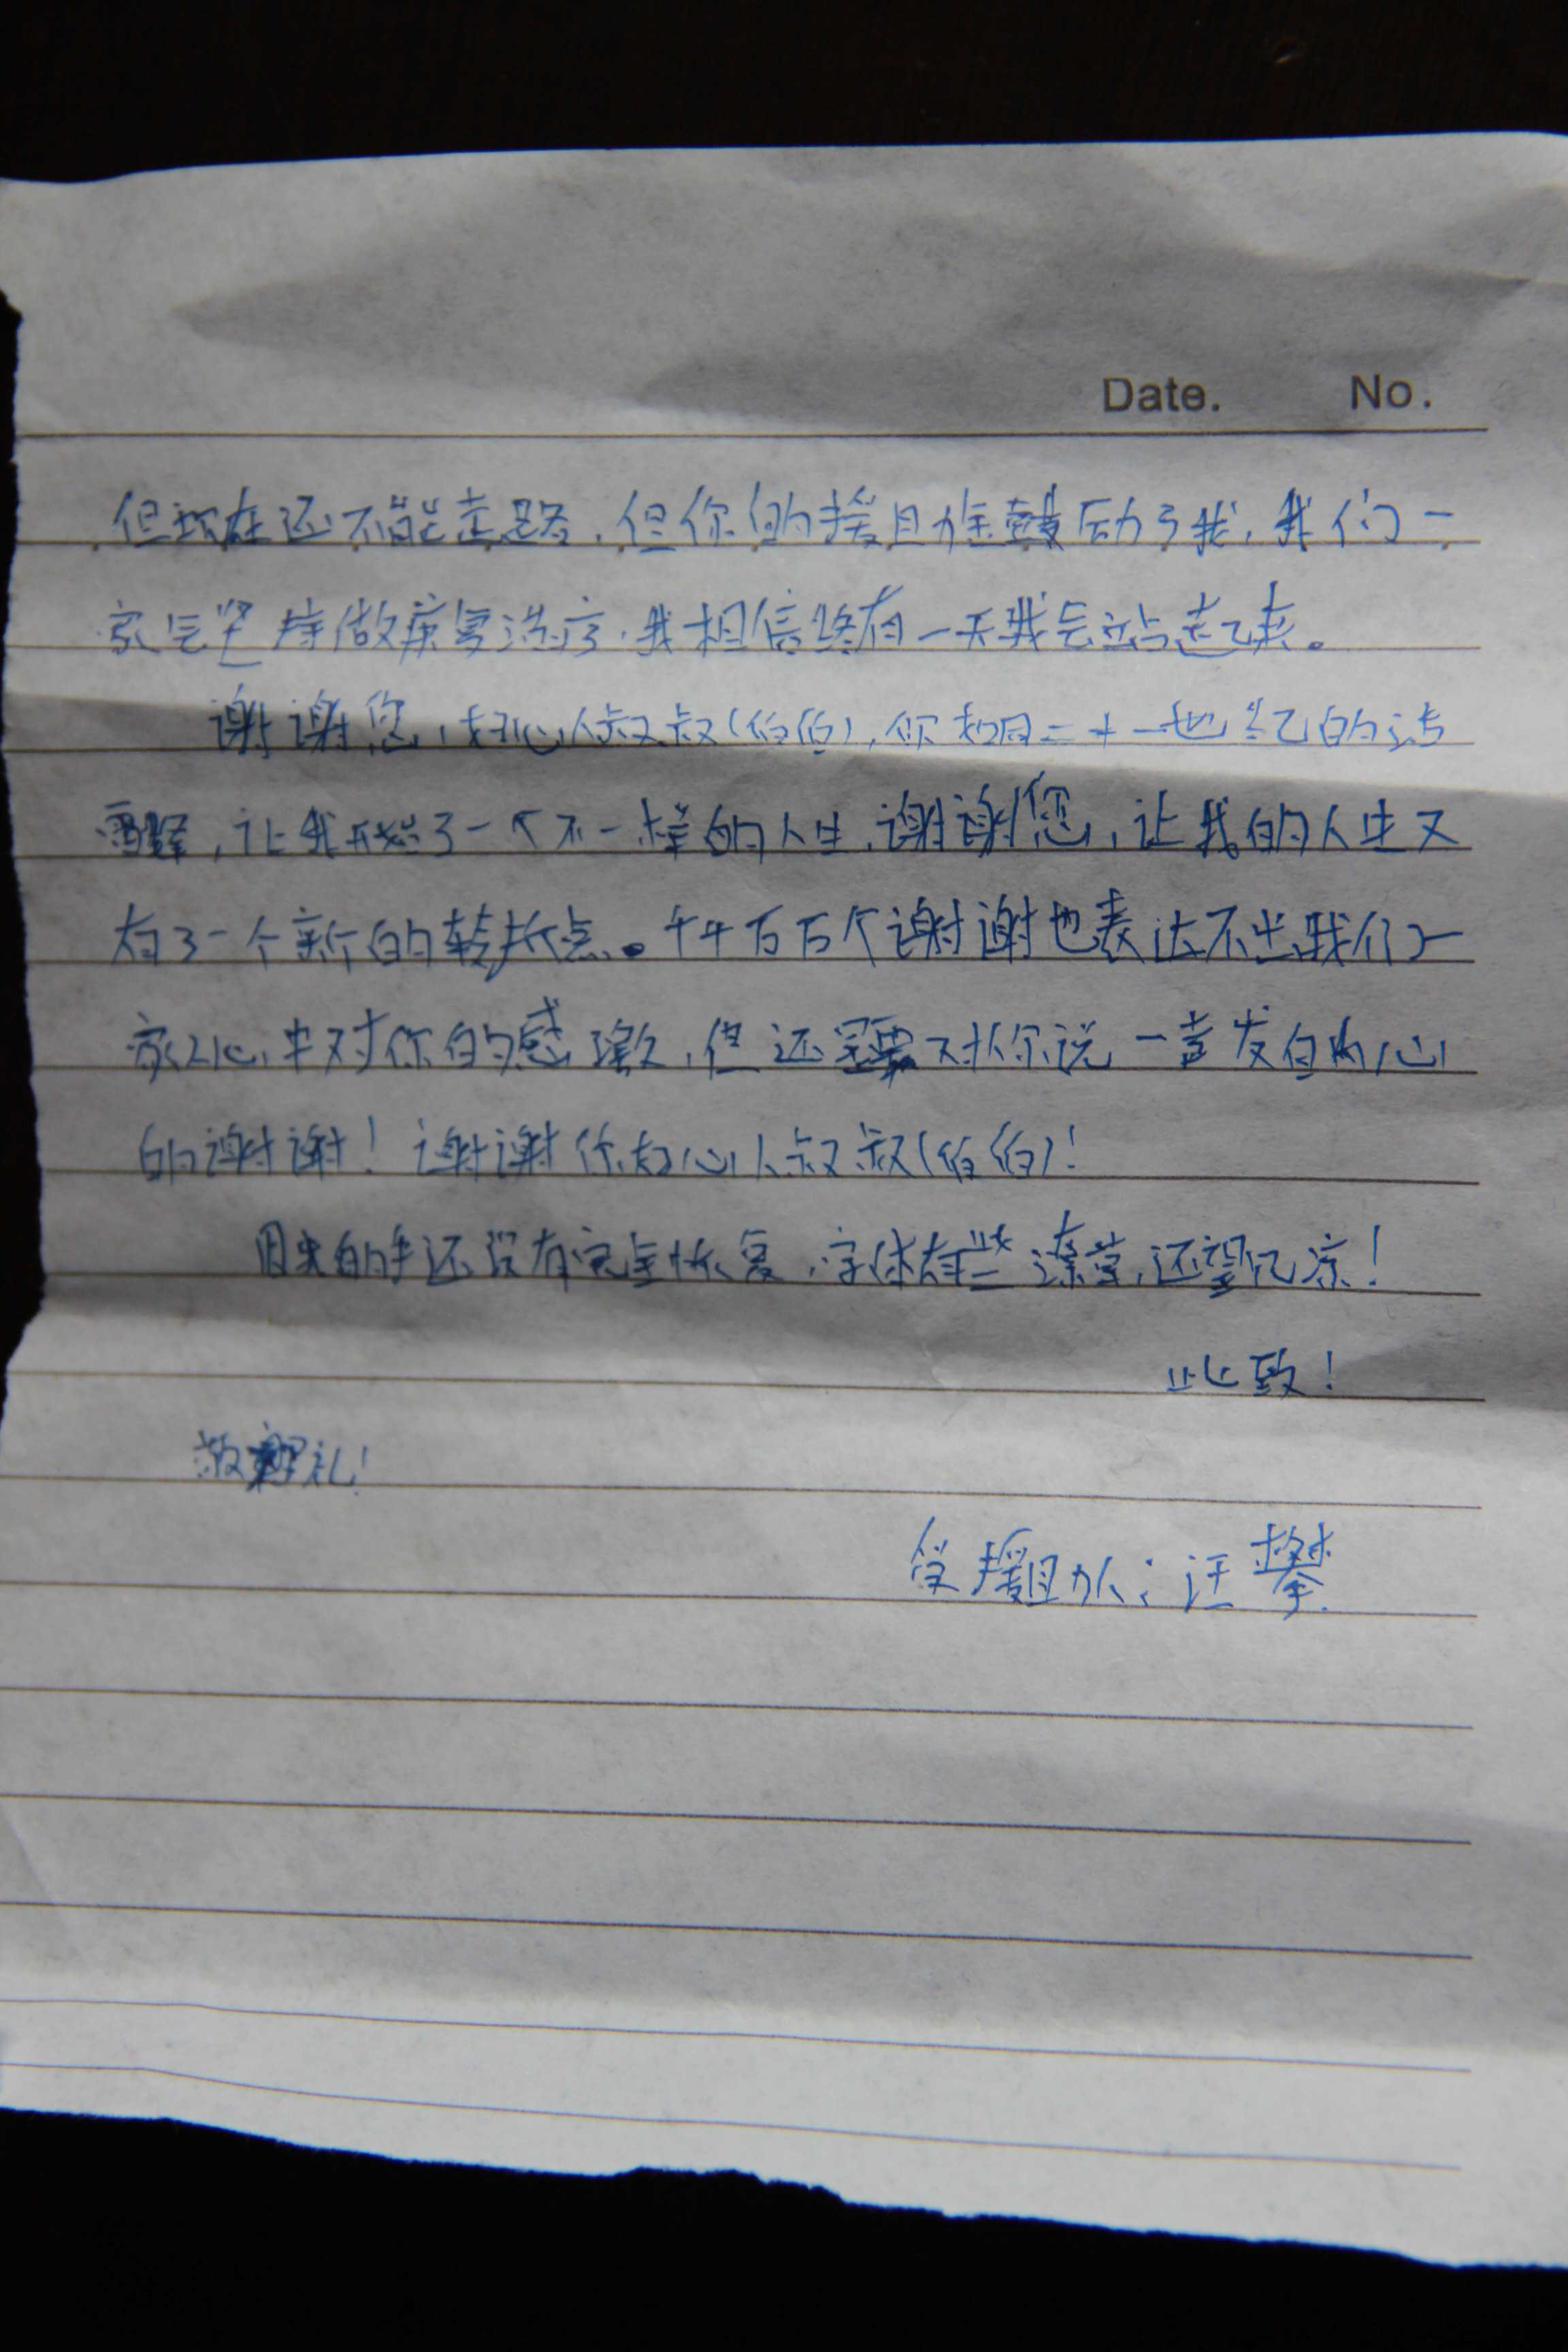 Date. No.
但现在还不能走路，但你的援助鼓动了我，我们一
家会坚持做康复治疗，我相信终有一天我会站起来。
谢谢您，好心人叔叔(伯伯)，你如同二十一世纪的活
雷锋，让我开始了一个不一样的人生，谢谢您，让我的人生又
有了一个新的转折点。千千万万个谢谢也表达不出我们一
家人心中对你的感激，但还是要对你说一声发自内心
的谢谢！谢谢你好心人叔叔(伯伯)！
因我的手还没有完全恢复，字体有些潦草，还望见凉！
此致！
敬礼！
受援助人：汪攀